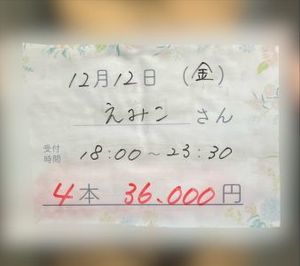 12月12日 (金)
えみこ さん
受付
時間 18:00～23:30
4本 36.000円